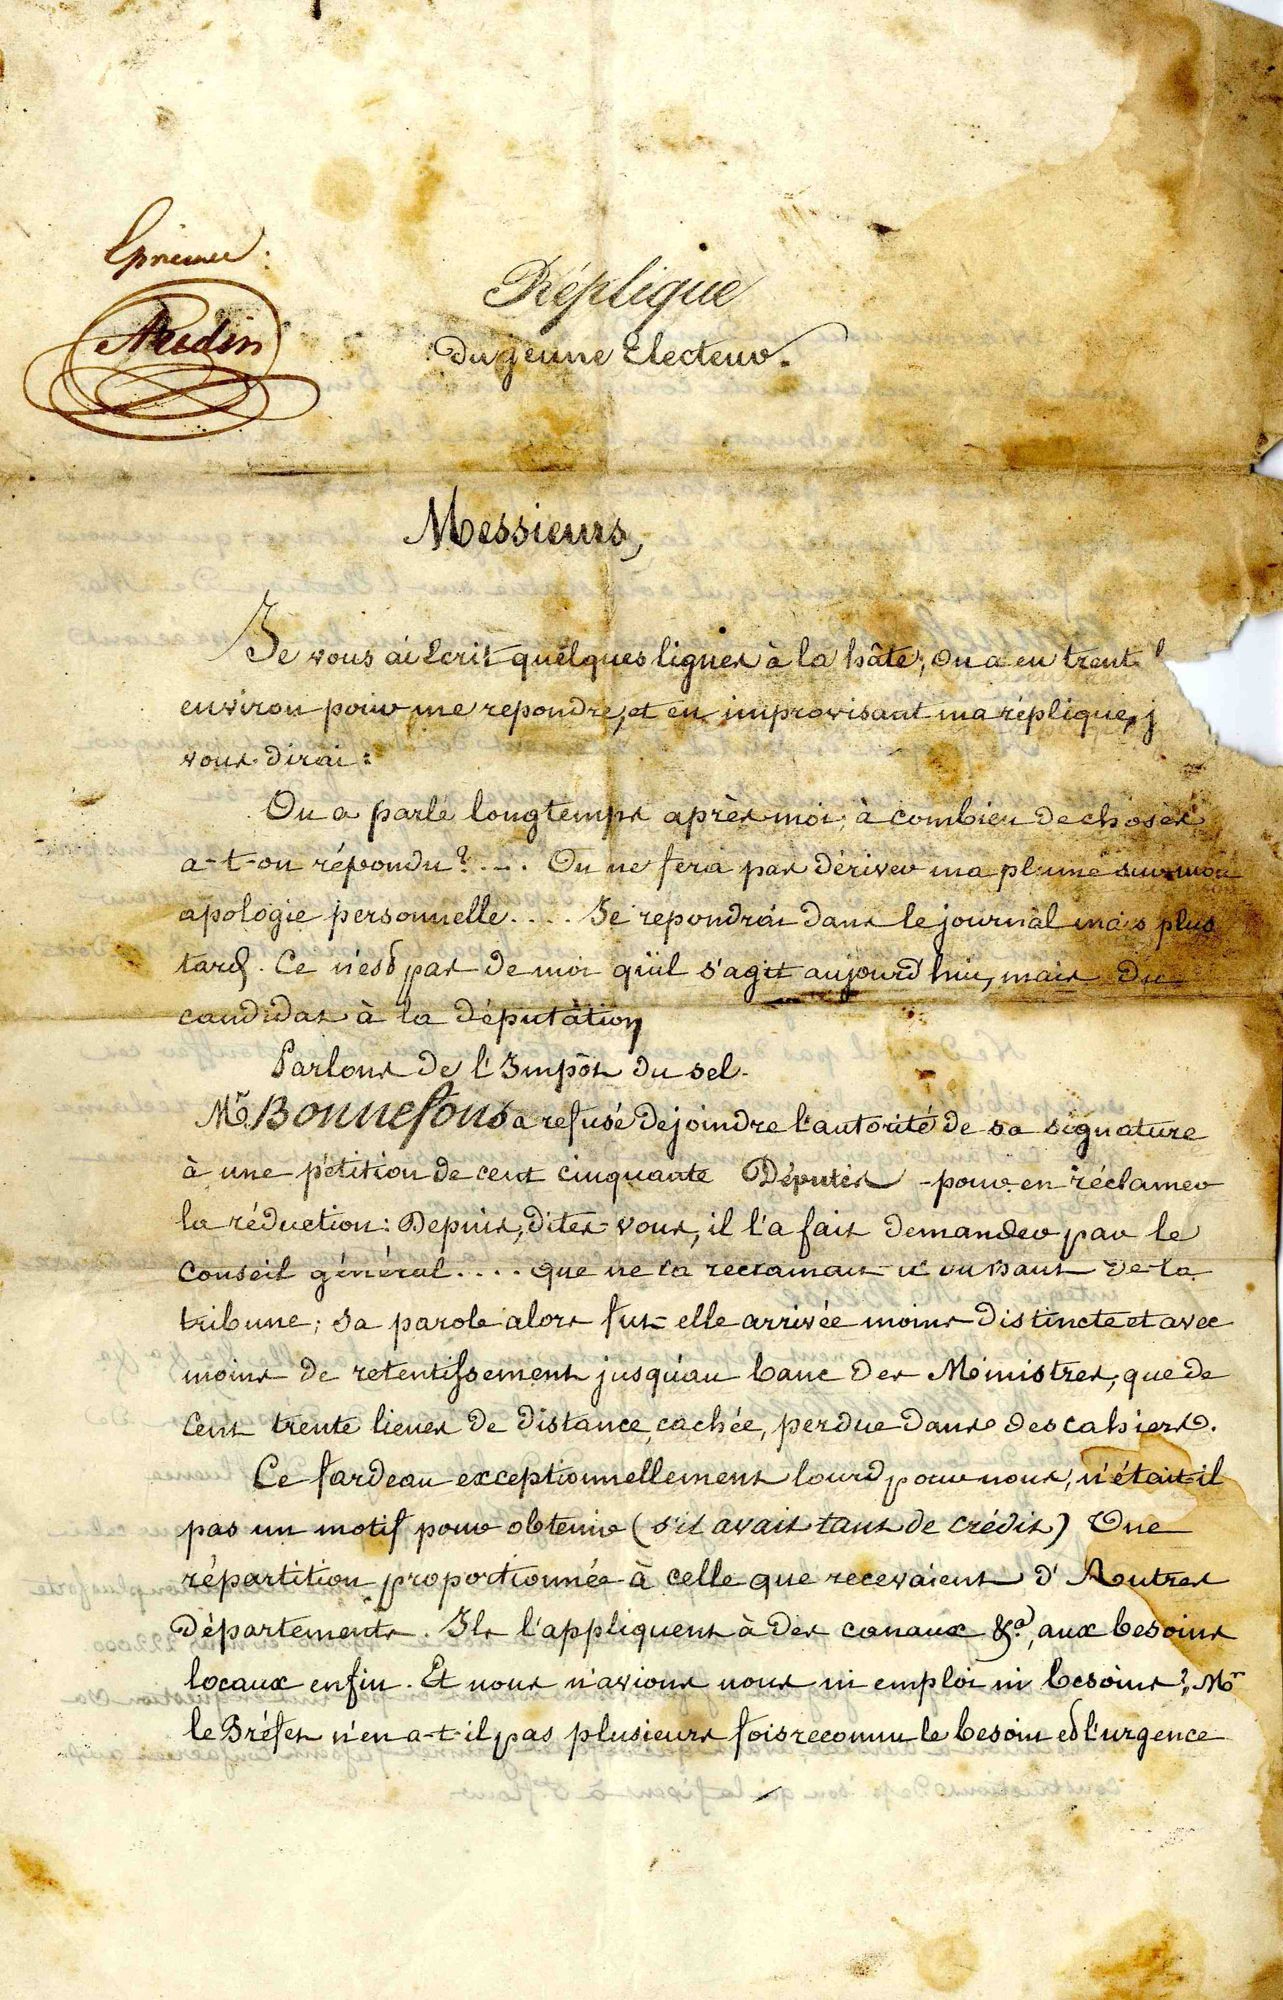 Réplique
Du jeune Electeur.
Messieurs,
Je vous ai écrit quelques lignes à la hâte; on a eu trent
environ pour me repondre, et en improvisant ma réplique, j
vous dirai:
On a parlé longtemps après moi, à combien de choses
a-t-on répondu? .... On ne fera pas dériver ma plume sur mon
apologie personnelle.... Je répondrai dans le journal mais plus
tard. Ce n'est pas de moi qu'il s'agit aujourd'hui, mais du
candidat à la députation
Parlons de l'Impôt du sel.
Mr. Bonnefons a refusé de joindre l'autorité de sa signature
à une pétition de cent cinquante Députés - pour en réclamer
la réduction: Depuis, dites-vous, il l'a fait demander par le
Conseil général.... que ne la réclamait-il du haut de la
tribune; sa parole alors fut-elle arrivée moins distincte et avec
moins de retentissement jusqu'au banc des Ministres, que de
Cent trente lieues de distance, cachée, perdue dans des cahiers.
Ce fardeau exceptionnellement lourd pour nous, n'était-il
pas un motif pour obtenir (s'il avait tant de crédit) Une
répartition proportionnée à celle que recevaient d'Autres
départements. Ils l'appliquent à des canaux &a, aux besoins
locaux enfin. Et nous n'avions nous ni emploi ni besoins?, Mr
le Préfet n'en a-t-il pas plusieurs fois reconnu le besoin et l'urgence